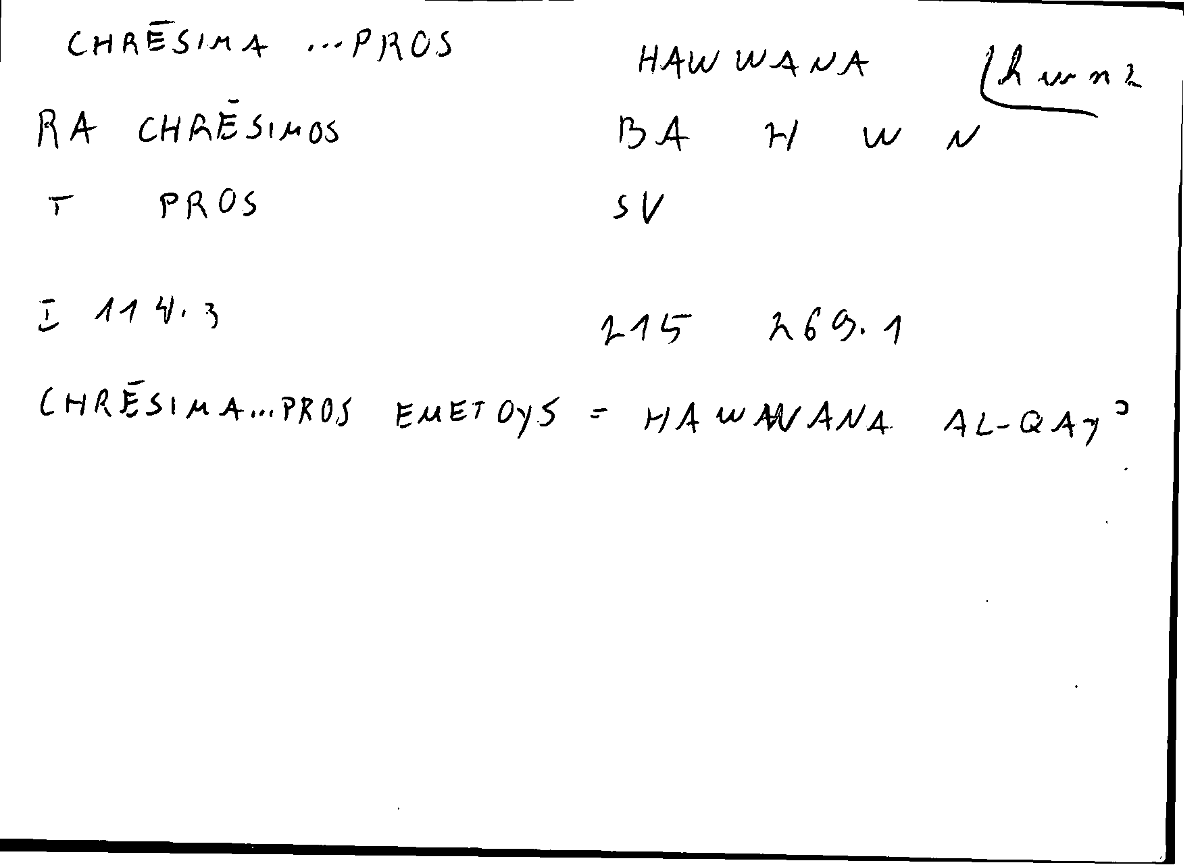 CHRĒSIMA ...PROS HAWWANA hwn2
RA CHRĒSIMOS BA H W N
T PROS SV
I 114.3 215 269.1
CHRĒSIMA...PROS EMETOYS = HAWWANA AL-QAYʾ